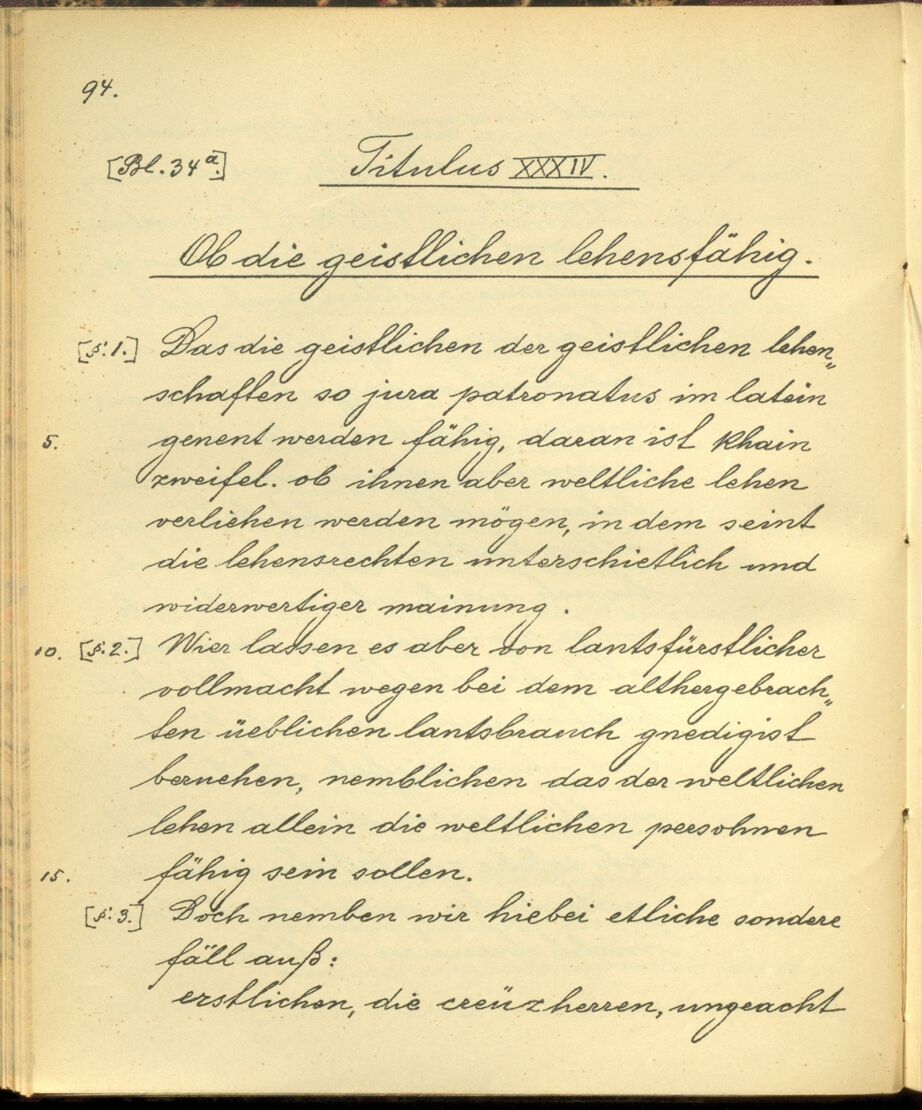 94.
[Bl. 34a.] Titulus XXXIV.
Ob die geistlichen lehensfähig.
[§. 1.] Das die geistlichen der geistlichen lehen„
schaften so jura patronatus im latein
5. genent werden fähig, daran ist khain
zweifel. ob ihnen aber weltliche lehen
verliehen werden mögen, in dem seint
die lehensrechten unterschietlich und
widerwertiger mainung.
10. [§. 2.] Wier lassen es aber von lantsfürstlicher
vollmacht wegen bei dem althergebrach„
ten üeblichen lantsbrauch gnedigist
beruehen, nemblichen das der weltlichen
lehen allein die weltlichen persohnen
15. fähig sein sollen.
[§. 3.] Doch nemben wir hiebei etliche sondere
fäll auß:
erstlichen, die creüzherren, ungeacht